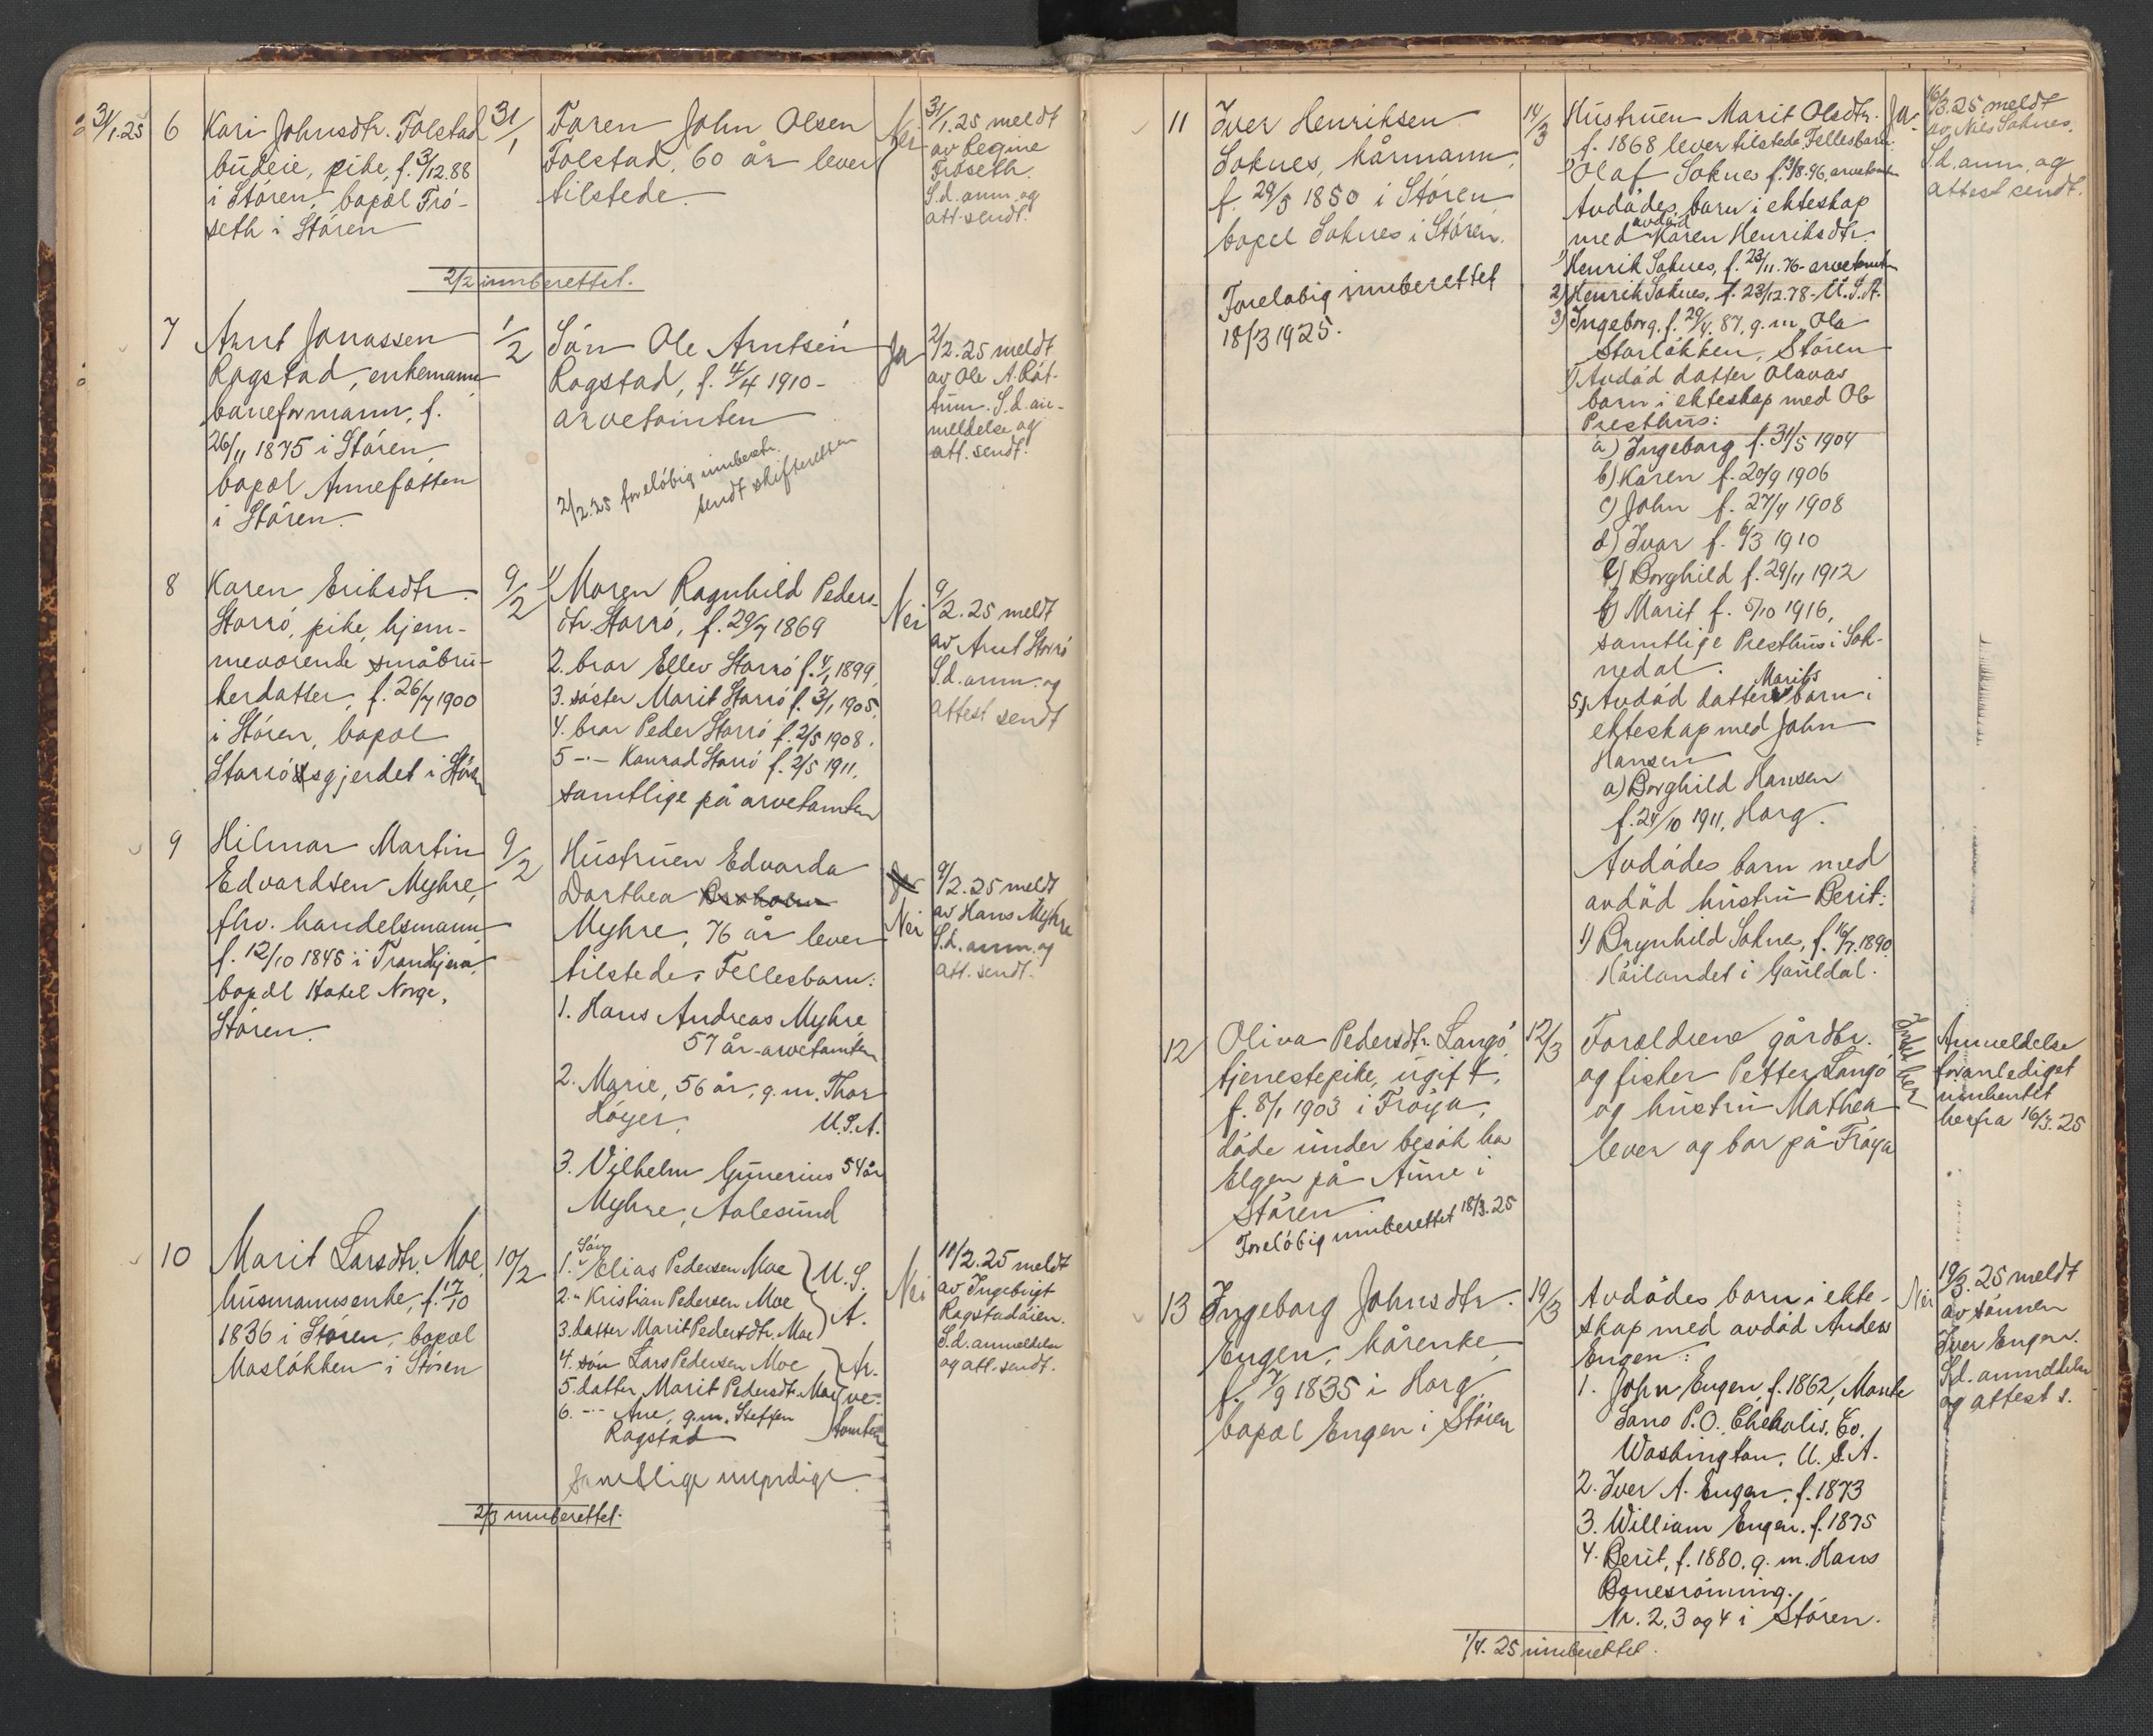 31/1.25 6 Kari Johnsdtr. Folstad
budeie, pike, f. 3/12.88
i Støren, bopæl Frø-
seth i Støren
31/1
Faren John Olsen
Folstad, 60 år lever
tilstede.
Nei
31/1.25 meldt
av Regine
Frøseth.
S.d. anm. og
att. sendt.
2/2 innberettet.
7 Arnt Jonassen
Rogstad, enkemann
baneformann, f.
26/11 1875 i Støren,
bopæl Annefotten
i Støren.
1/2
Søn Ole Arntsen
Rogstad, f. 4/4 1910 -
arvetomten
2/2.25 foreløbig innberetn.
sendt skifteretten
Ja
2/2.25 meldt
av Ole A. Røt-
tum. S.d. an-
meldelse og
att. sendt.
8 Karen Eriksdtr.
Storrø, pike, hjem-
meværende småbru-
kerdatter, f. 26/7 1900
i Støren, bopæl
Storrøsgjerdet i Støren
9/2
1) Maren Ragnhild Peders-
dtr. Storrø, f. 29/7 1869
2. bror Ellev Storrø f. 4/1 1899,
3. søster Marit Storrø f. 3/1 1905,
4. bror Peder Storrø f. 2/5 1908.
5 -"- Konrad Storrø f. 2/5 1911.
samtlige på arvetomten
Nei
9/2.25 meldt
av Arnt Storrø
S.d. anm. og
attest sendt
9 Hilmar Martin
Edvardsen Myhre,
fhv. handelsmann
f. 12/10 1845 i Trondhjem,
bopæl Hotel Norge,
Støren.
9/2
Hustruen Edvarda
Dorthea
Myhre, 76 år lever
tilstede. Fellesbarn:
1. Hans Andreas Myhre
57 år - arvetomten
2. Marie, 56 år, g.m. Thor
Høyer, U.S.A.
3. Vilhelm Gunerius 54 år
Myhre, Aalesund
Ja
Nei
9/2.25 meldt
av Hans Myhre
S.d. anm. og
att. sendt.
10 Marit Larsdtr. Moe,
husmannsenke, f. 17/10
1836 i Støren, bopæl
Mosløkken i Støren
10/2
Søn
1. Elias Pedersen Moe } U.S.
2. " Kristian Pedersen Moe } A.
3. datter Marit Pedersdtr. Moe
4. søn Lars Pedersen Moe } Ar-
5. datter Marit Pedersdtr. Moe } ve-
6. -"- Ane, g.m. Steffen } tomten
Rogstad
samtlige myndige.
Nei
10/2.25 meldt
av Ingebrigt
Rogstadøien.
S.d. anmeldelse
og att. sendt.
2/3 innberettet.
11 Iver Henriksen
Soknes, kårmann,
f. 29/5 1850 i Støren
bopæl Soknes i Støren.
Foreløbig innberettet
18/3 1925.
14/3
Hustruen Marit Olsdtr.
f. 1868 lever tilstede. Fellesbarn:
1) Olaf Soknes f. 9/8.96, arvetomten
Avdødes barn i ekteskap
med avdød Karen Henriksdtr.
1) Henrik Soknes, f. 23/11.76 - arvetomten
2) Henrik Soknes, f. 23/12.78 - U.S.A.
3) Ingeborg, f. 29/4.87, g.m. Ola
Storløkken, Støren
4) Avdød datter Olavas
barn i ekteskap med Ole
Presthus:
a) Ingeborg f. 31/5 1904
b) Karen f. 20/9 1906
c) John f. 27/4 1908
d) Ivar f. 6/3 1910
e) Borghild f. 29/11 1912
f) Marit f. 5/10 1916,
samtlige Presthus i Sok-
nedal.
5) Avdød datter Marits barn i
ekteskap med John
Hansen
a) Borghild Hansen
f. 24/10 1911, Horg.
Avdødes barn med
avdød hustru Berit:
1) Brynhild Soknes, f. 16/7.1890
Høilandet i Gauldal.
Ja
16/3.25 meldt
av Nils Soknes.
S.d. anm. og
attest sendt.
12 Oliva Pedersdtr. Langø,
tjenestepike, ugift,
f. 8/1 1903 i Frøya,
døde under besøk hos
Elgen på Aune i
Støren
Foreløbig innberettet 18/3.25
12/3
Forældrene gårdbr.
og fisker Petter Langø
og hustru Mathea
lever og bor på Frøya
Anmeldelse
foranlediget
innhentet
herfra 16/3.25
13 Ingeborg Johnsdtr.
Engen, kårenke,
f. 7/9 1835 i Horg
bopæl Engen i Støren
19/3
Avdødes barn i ekte-
skap med avdød Anders
Engen:
1. John Engen, f. 1862, Monte
Sano P.O. Chehalis, Co,
Washington, U.S.A.
2. Iver A. Engen, f. 1873
3. William Engen, f. 1875
4. Berit, f. 1880, g.m. Hans
Bonesrønning.
Nr. 2, 3 og 4 i Støren.
Nei
19/3.25 meldt
av sønnen
Iver Engen.
S.d. anmeldelse
og attest s.
1/4.25 innberettet.